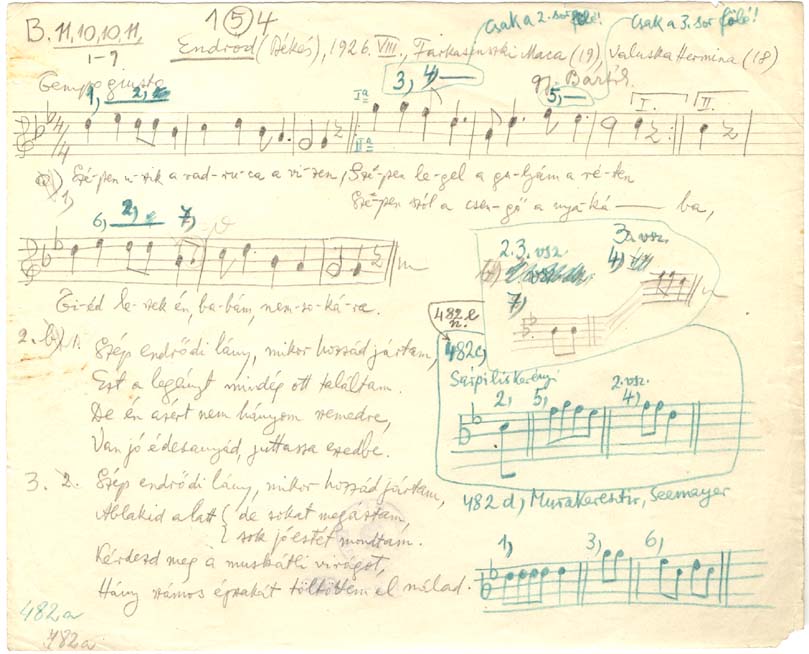 B. 11, 10, 10, 11,
1-9
1 (5) 4
Csak a 2. sor fölé!
Csak a 3. sor fölé!
Endrőd (Békés), 1926. VIII., Farkasinszki Maca (19), Valuska Hermina (18)
gy. Bartók.
Tempo giusto
1, 2,
3, 4)
5,
I.
II.
4/4
Iª
IIª
a) 1) Szé-pen ú-szik a vad-ru-ca a ví-zen, Szé-pen le-gel a gu-lyám a ré-ten
Szé-pen szól a csen-gő a nya-ká— ba,
6, 2, 7,
Ti-éd le-szek én, ba-bám, nem-so-ká-ra.
2.3. vsz.
3a vsz.
4)
7)
482 e
n.
2. b) 1. Szép endrődi lány, mikor hozzád jártam,
Ezt a legényt mindég ott találtam.
De én azért nem hányom szemedre,
Van jó édesanyád, juttassa eszedbe.
482c)
Sárpiliskerényi
2, 5, 2. vsz. 4)
3. 2. Szép endrődi lány, mikor hozzád jártam,
Ablakid alatt { de sokat megáztam,
{ sok jóestét mondtam.
Kérdezd meg a muskátli virágot,
Hány számos éjszakát töltöttem el nálad.
482 d, Murakeresztúr, Seemayer
1) 3) 6)
482a
482a